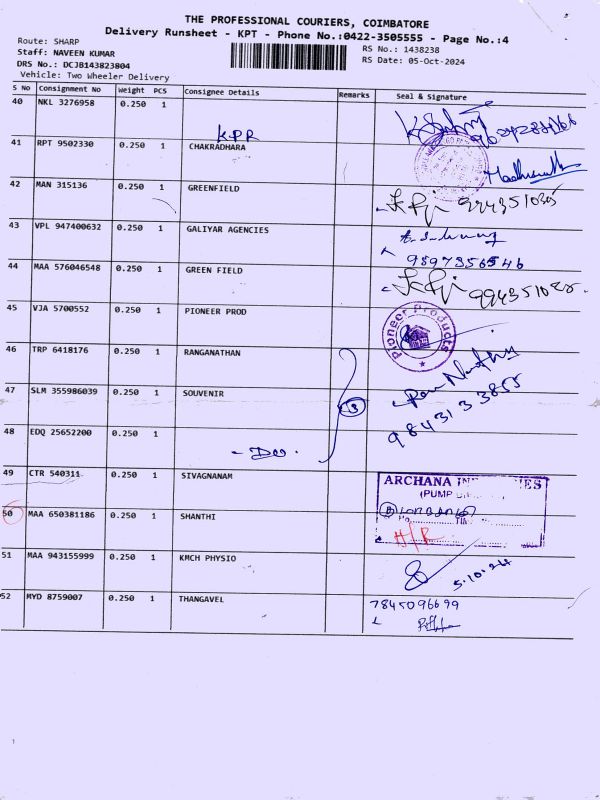 THE PROFESSIONAL COURIERS, COIMBATORE
Delivery Runsheet - KPT - Phone No.:0422-3505555 - Page No.:4
Route: SHARP
RS No.: 1438238
Staff: NAVEEN KUMAR
RS Date: 05-Oct-2024
DRS No.: DCJB143823804
Vehicle: Two Wheeler Delivery
S No Consignment No Weight PCS Consignee Details Remarks Seal & Signature
40 NKL 3276958 0.250 1 KPR
41 RPT 9502330 0.250 1 CHAKRADHARA
42 MAN 315136 0.250 1 GREENFIELD
43 VPL 947400632 0.250 1 GALIYAR AGENCIES
9597356546
44 MAA 576046548 0.250 1 GREEN FIELD
45 VJA 5700552 0.250 1 PIONEER PROD
Pioneer Products
46 TRP 6418176 0.250 1 RANGANATHAN
47 SLM 355986039 0.250 1 SOUVENIR
3
9843133855
48 EDQ 25652200 0.250 1
49 CTR 540311 0.250 1 SIVAGNANAM
ARCHANA
(PUMP
50 MAA 650381186 0.250 1 SHANTHI
H/R
51 MAA 943155999 0.250 1 KMCH PHYSIO
5.10.24
52 MYD 8759007 0.250 1 THANGAVEL
7845096699